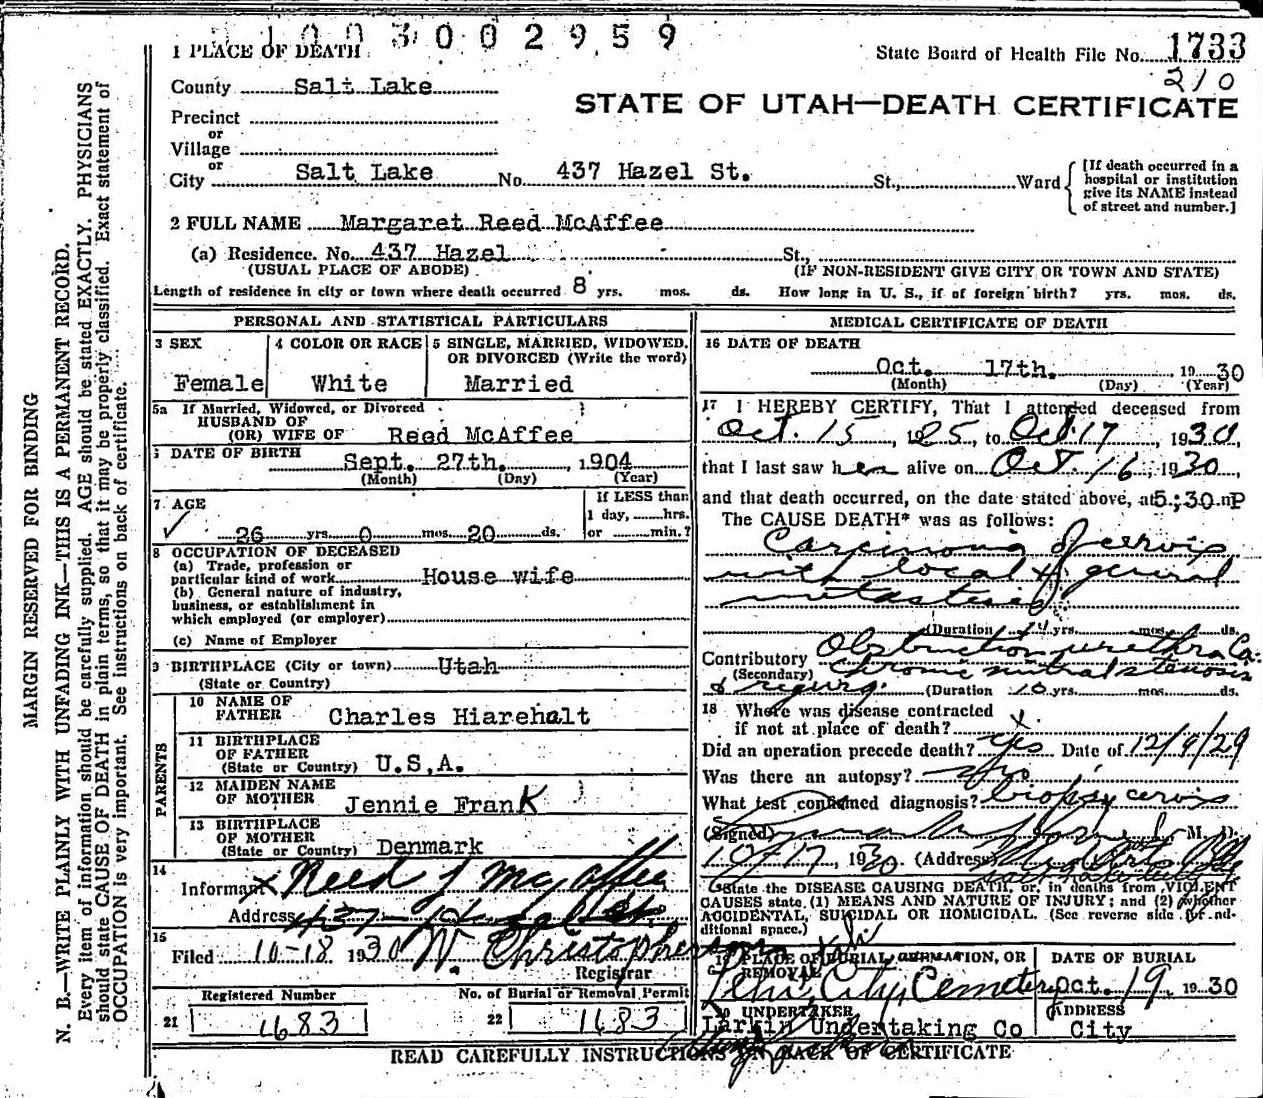 1003002959
1 PLACE OF DEATH
State Board of Health File No. 1733
210
County Salt Lake
STATE OF UTAH—DEATH CERTIFICATE
Precinct
or
Village
or
City Salt Lake No. 437 Hazel St. St., Ward
[If death occurred in a
hospital or institution
give its NAME instead
of street and number.]
2 FULL NAME Margaret Reed McAffee
(a) Residence. No. 437 Hazel St.,
(USUAL PLACE OF ABODE) (IF NON-RESIDENT GIVE CITY OR TOWN AND STATE)
Length of residence in city or town where death occurred 8 yrs. mos. ds. How long in U. S., if of foreign birth? yrs. mos. ds.
PERSONAL AND STATISTICAL PARTICULARS
3 SEX
Female
4 COLOR OR RACE
White
5 SINGLE, MARRIED, WIDOWED,
OR DIVORCED (Write the word)
Married
5a If Married, Widowed, or Divorced
HUSBAND OF
(OR) WIFE OF Reed McAffee
6 DATE OF BIRTH Sept. 27th. , 1904
(Month) (Day) (Year)
7 AGE
26 yrs. 0 mos. 20 ds.
If LESS than
1 day, hrs.
or min.?
8 OCCUPATION OF DECEASED
(a) Trade, profession or
particular kind of work House wife
(b) General nature of industry,
business, or establishment in
which employed (or employer)
(c) Name of Employer
9 BIRTHPLACE (City or town) Utah
(State or Country)
PARENTS
10 NAME OF
FATHER Charles Hiarehalt
11 BIRTHPLACE
OF FATHER
(State or Country) U.S.A.
12 MAIDEN NAME
OF MOTHER Jennie Frank
13 BIRTHPLACE
OF MOTHER
(State or Country) Denmark
14
Informant x Reed J McAffee
Address 437 Hazel St
15
Filed 10-18 1930 W. Christopherson
Registrar
Registered Number
21 1683
No. of Burial or Removal Permit
22 1683
MEDICAL CERTIFICATE OF DEATH
16 DATE OF DEATH
Oct. 17th. , 1930
(Month) (Day) (Year)
17 I HEREBY CERTIFY, That I attended deceased from
Oct. 15, 1925, to Oct 17, 1930,
that I last saw her alive on Oct. 16, 1930,
and that death occurred, on the date stated above, at 5:30 P
The CAUSE DEATH* was as follows:
Carcinoma of cervix
with local & general
metastasis
(Duration yrs. mos. ds.
Contributory Obstruction urethra Ca.
(Secondary) Chronic mitral stenosis
& regurg. (Duration 10 yrs. mos. ds.
18 Where was disease contracted
if not at place of death? x.
Did an operation precede death? yes Date of 12/9/29
Was there an autopsy? no
What test confirmed diagnosis? biopsy cervix
(Signed) M. D.
10/17, 1930. (Address)
*State the DISEASE CAUSING DEATH, or, in deaths from VIOLENT
CAUSES state (1) MEANS AND NATURE OF INJURY; and (2) whether
ACCIDENTAL, SUICIDAL OR HOMICIDAL. (See reverse side for ad-
ditional space.)
19 PLACE OF BURIAL, CREMATION, OR
REMOVAL
Lehi City Cemetery
DATE OF BURIAL
Oct. 19, 1930
20 UNDERTAKER
Larkin Undertaking Co
ADDRESS
City
READ CAREFULLY INSTRUCTIONS ON BACK OF CERTIFICATE
MARGIN RESERVED FOR BINDING
N. B.—WRITE PLAINLY WITH UNFADING INK—THIS IS A PERMANENT RECORD.
Every item of information should be carefully supplied. AGE should be stated EXACTLY. PHYSICIANS
should state CAUSE OF DEATH in plain terms, so that it may be properly classified. Exact statement of
OCCUPATION is very important. See instructions on back of certificate.